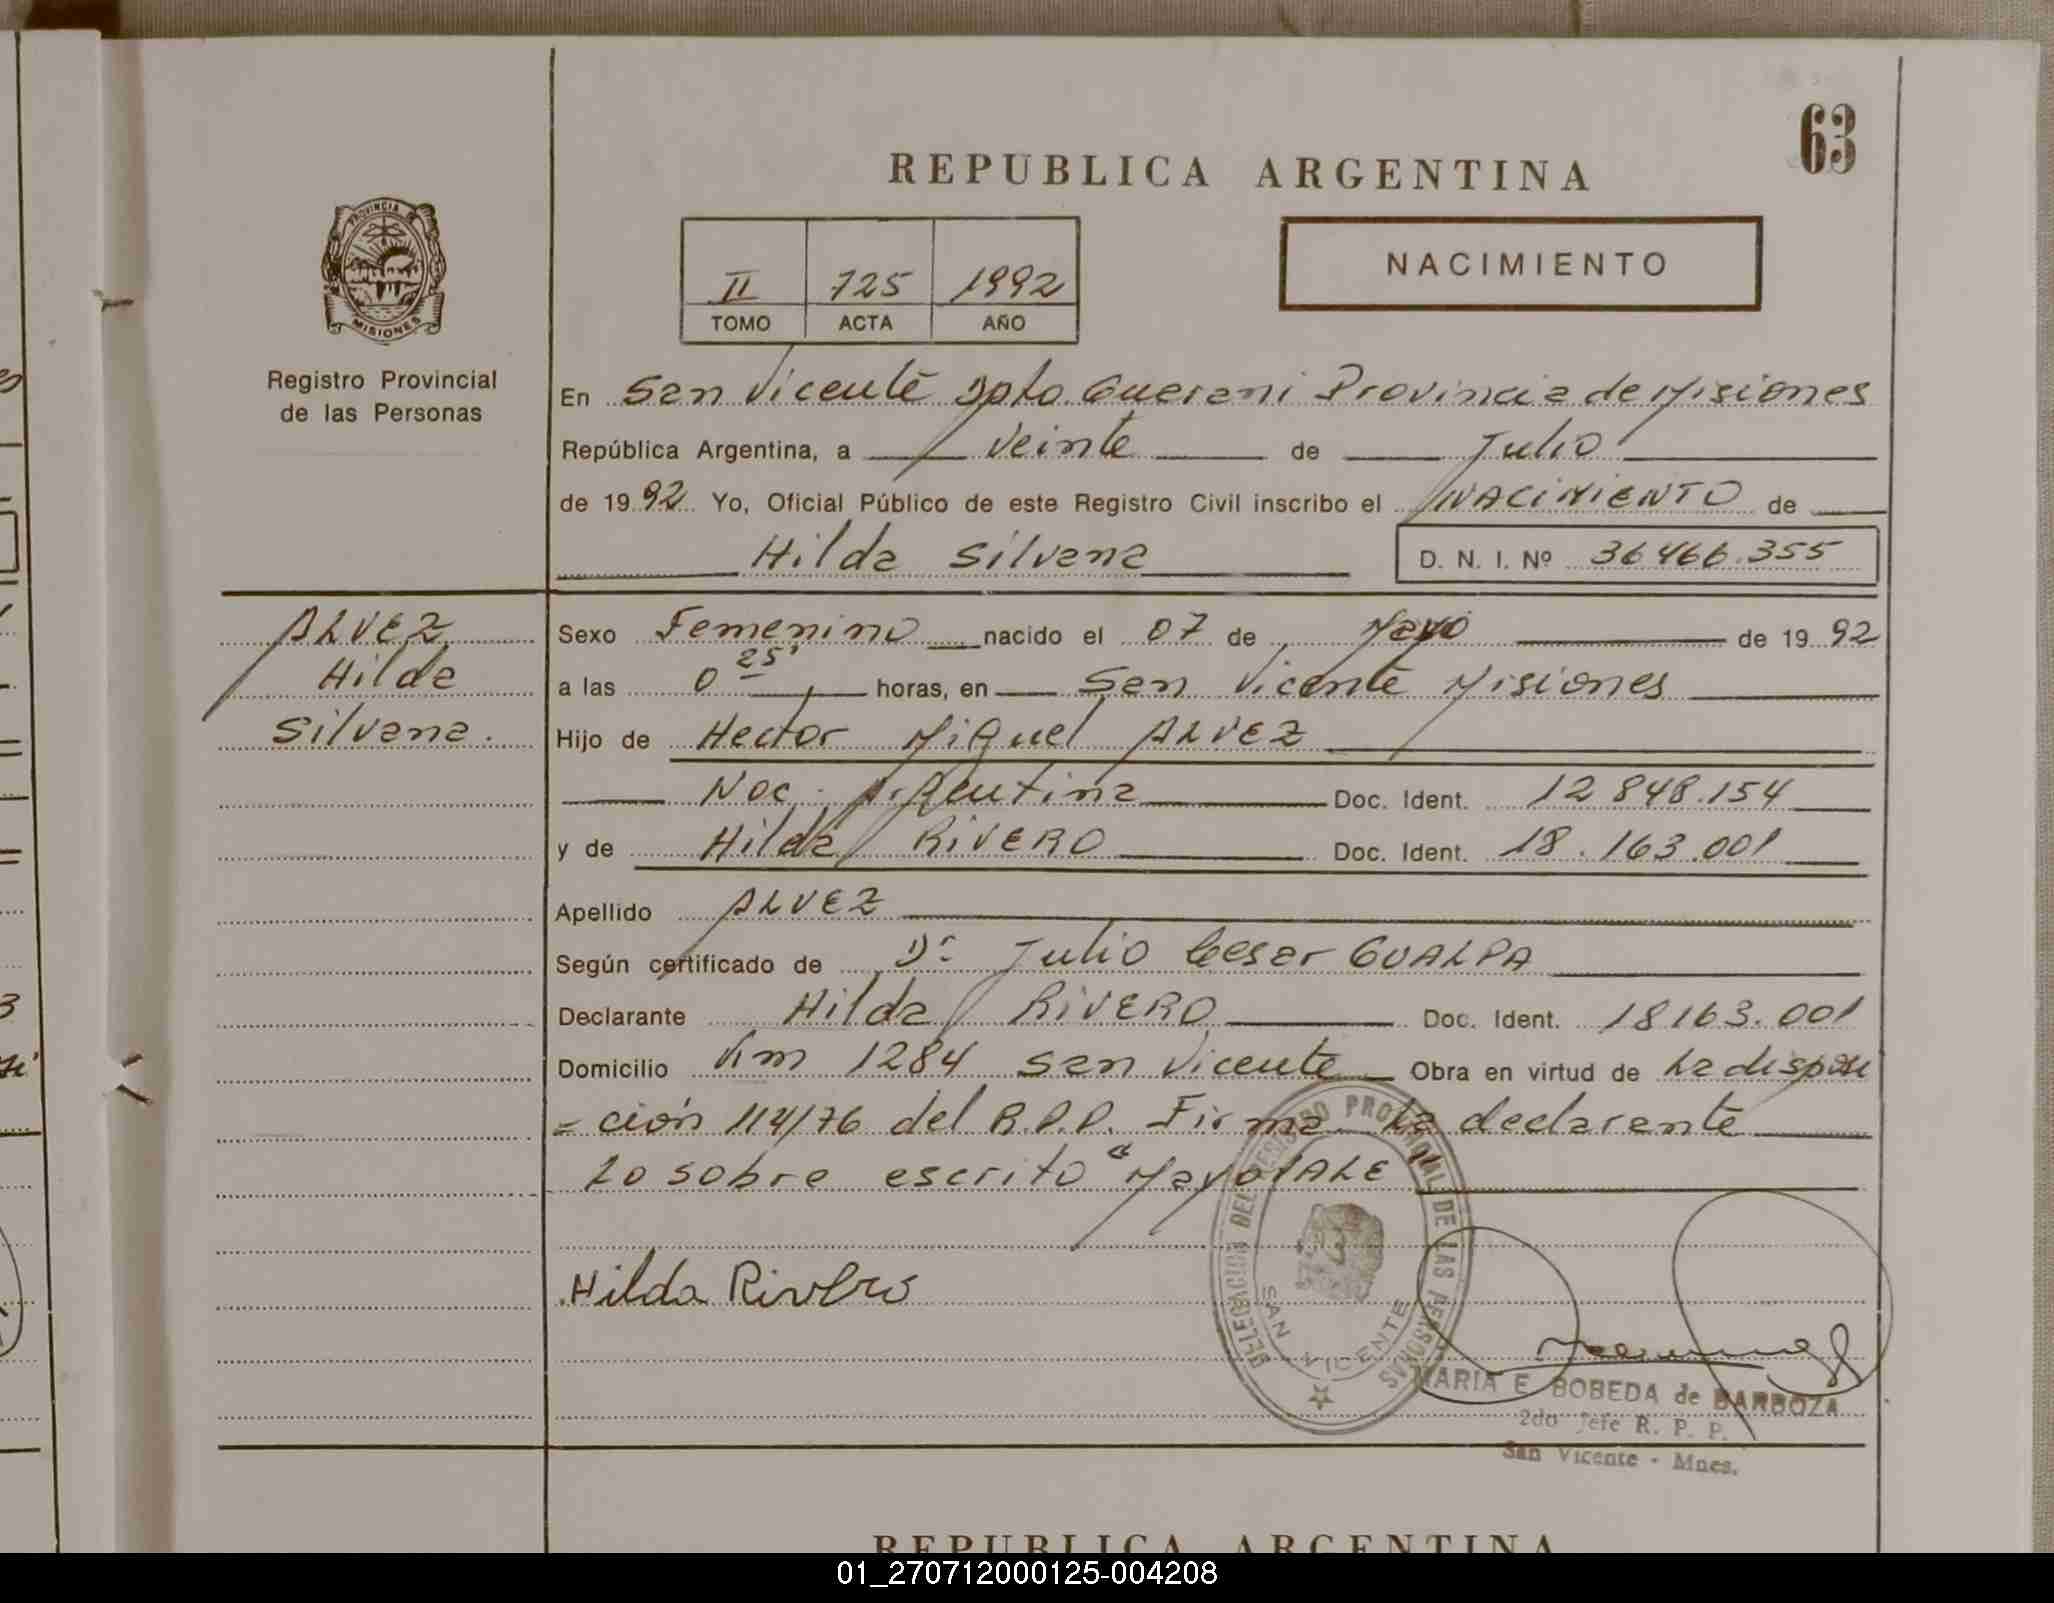 63
REPUBLICA ARGENTINA
PROVINCIA DE
MISIONES
Registro Provincial
de las Personas
II 725 1992
TOMO ACTA AÑO
NACIMIENTO
En San Vicente Dpto. Guarani Provincia de Misiones
República Argentina, a veinte de Julio
de 1992 Yo, Oficial Público de este Registro Civil inscribo el NACIMIENTO de
Hilda Silvana D. N. I. Nº 36466.355
ALVEZ
Hilda
Silvana.
Sexo Femenino nacido el 07 de Mayo de 1992
a las 0 25' horas, en San Vicente Misiones
Hijo de Hector Miguel ALVEZ
Nac. Argentina Doc. Ident. 12848.154
y de Hilda RIVERO Doc. Ident. 18.163.001
Apellido ALVEZ
Según certificado de Dr Julio Cesar GUALPA
Declarante Hilda RIVERO Doc. Ident. 18163.001
Domicilio Km 1284 San Vicente Obra en virtud de La disposi
=ción 114/76 del R.P.P. Firma La declarante
Lo sobre escrito "Mayo VALE
Hilda Rivero
DELEGACION DEL REGISTRO PROVINCIAL DE LAS PERSONAS
SAN VICENTE
MARIA E. BOBEDA de BARBOZA
2do Jefe R. P. P.
San Vicente - Mnes.
REPUBLICA ARGENTINA
01_270712000125-004208